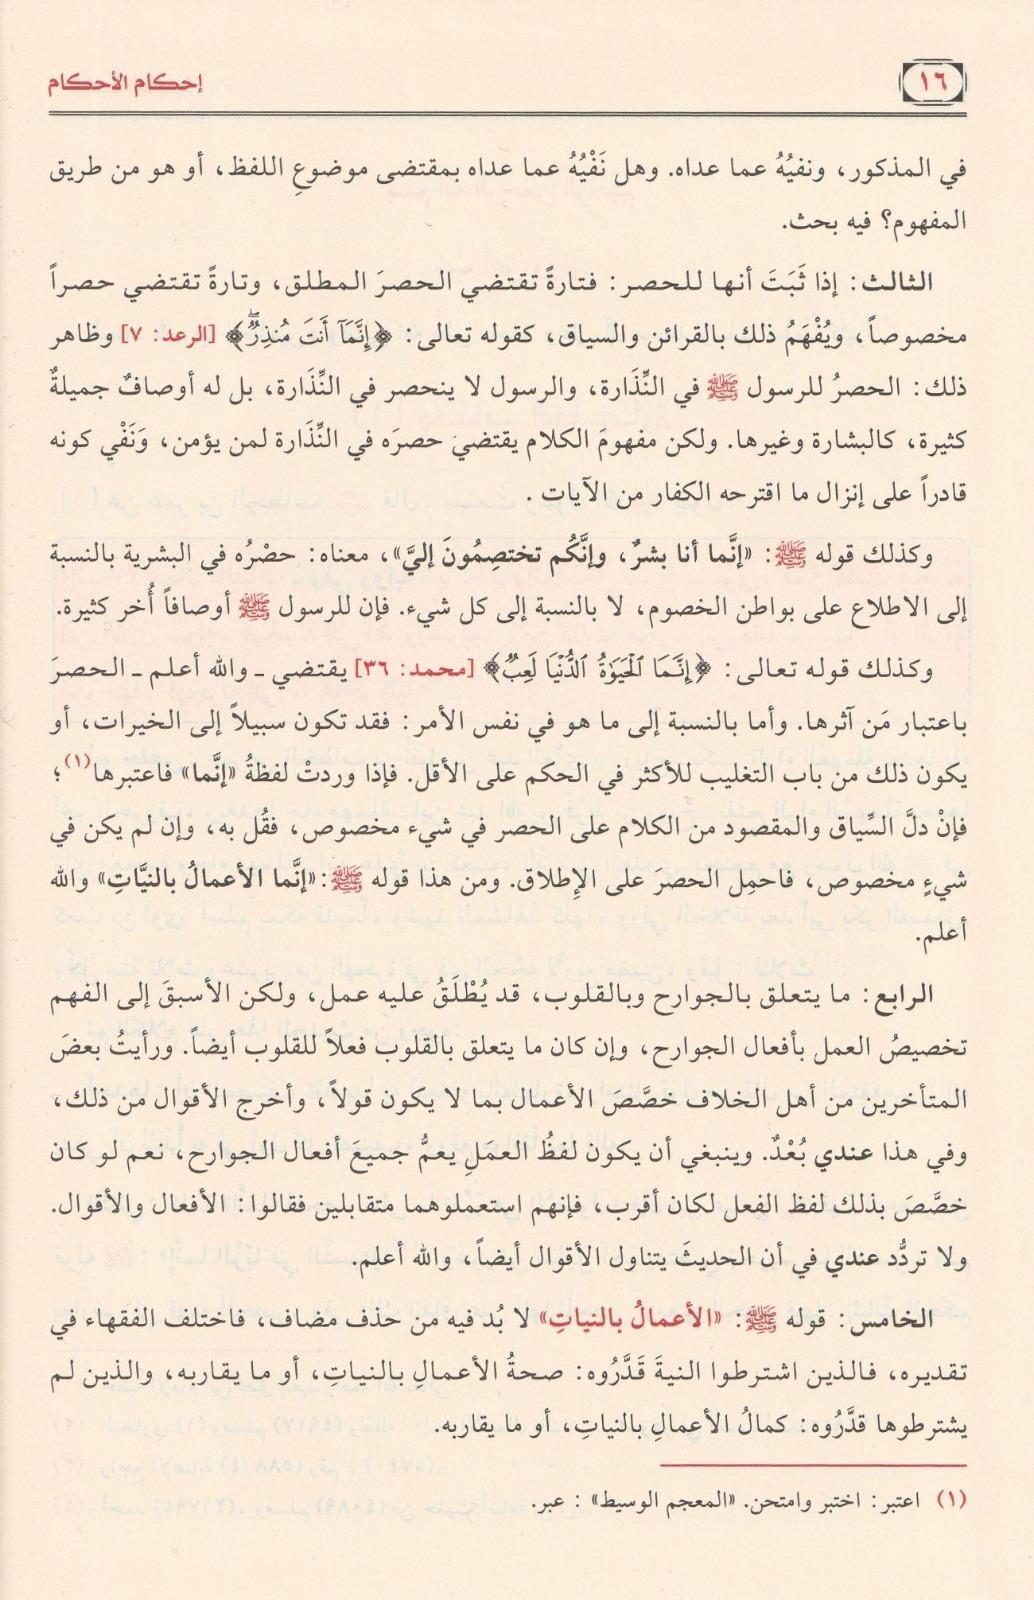 ١٦
إحكام الأحكام
في المذكور، ونفيُهُ عما عداه. وهل نَفْيُهُ عما عداه بمقتضى موضوعِ اللفظ، أو هو من طريق
المفهوم؟ فيه بحث.
الثالث: إذا ثَبَتَ أنها للحصر: فتارةً تقتضي الحصرَ المطلق، وتارةً تقتضي حصراً
مخصوصاً، ويُفْهَمُ ذلك بالقرائن والسياق، كقوله تعالى: ﴿إِنَّمَآ أَنتَ مُنذِرٌۖ﴾ [الرعد: ٧] وظاهر
ذلك: الحصرُ للرسول ﷺ في النِّذَارة، والرسول لا ينحصر في النِّذَارة، بل له أوصافٌ جميلةٌ
كثيرة، كالبشارة وغيرها. ولكن مفهومَ الكلام يقتضيَ حصرَه في النِّذَارة لمن يؤمن، وَنَفْي كونه
قادراً على إنزال ما اقترحه الكفار من الآيات .
وكذلك قوله ﷺ: «إنَّما أنا بشرٌ، وإنَّكُم تختصِمُونَ إليَّ»، معناه: حصْرُه في البشرية بالنسبة
إلى الاطلاع على بواطن الخصوم، لا بالنسبة إلى كل شيء. فإن للرسول ﷺ أوصافاً أُخر كثيرة.
وكذلك قوله تعالى: ﴿إِنَّمَا ٱلْحَيَوٰةُ ٱلدُّنْيَا لَعِبٌ﴾ [محمد: ٣٦] يقتضي ـ والله أعلم ـ الحصرَ
باعتبار مَن آثرها. وأما بالنسبة إلى ما هو في نفس الأمر: فقد تكون سبيلاً إلى الخيرات، أو
يكون ذلك من باب التغليب للأكثر في الحكم على الأقل. فإذا وردتْ لفظةُ «إنَّما» فاعتبرها(١)؛
فإنْ دلَّ السِّياق والمقصود من الكلام على الحصر في شيء مخصوص، فقُل به، وإن لم يكن في
شيءٍ مخصوص، فاحمِل الحصرَ على الإِطلاق. ومن هذا قوله ﷺ: «إنَّما الأعمالُ بالنيَّاتِ» والله
أعلم.
الرابع: ما يتعلق بالجوارح وبالقلوب، قد يُطْلَقُ عليه عمل، ولكن الأسبقَ إلى الفهم
تخصيصُ العمل بأفعال الجوارح، وإن كان ما يتعلق بالقلوب فعلاً للقلوب أيضاً. ورأيتُ بعضَ
المتأخرين من أهل الخلاف خصَّصَ الأعمال بما لا يكون قولاً، وأخرج الأقوال من ذلك،
وفي هذا عندي بُعْدٌ. وينبغي أن يكون لفظُ العمَلِ يعمُّ جميعَ أفعال الجوارح، نعم لو كان
خصَّصَ بذلك لفظ الفعل لكان أقرب، فإنهم استعملوهما متقابلين فقالوا: الأفعال والأقوال.
ولا تردُّد عندي في أن الحديثَ يتناول الأقوال أيضاً، والله أعلم.
الخامس: قوله ﷺ: «الأعمالُ بالنياتِ» لا بُد فيه من حذف مضاف، فاختلف الفقهاء في
تقديره، فالذين اشترطوا النيةَ قَدَّرُوه: صحةُ الأعمالِ بالنياتِ، أو ما يقاربه، والذين لم
يشترطوها قدَّرُوه: كمالُ الأعمالِ بالنياتِ، أو ما يقاربه.
(١) اعتبر: اختبر وامتحن. «المعجم الوسيط» : عبر.